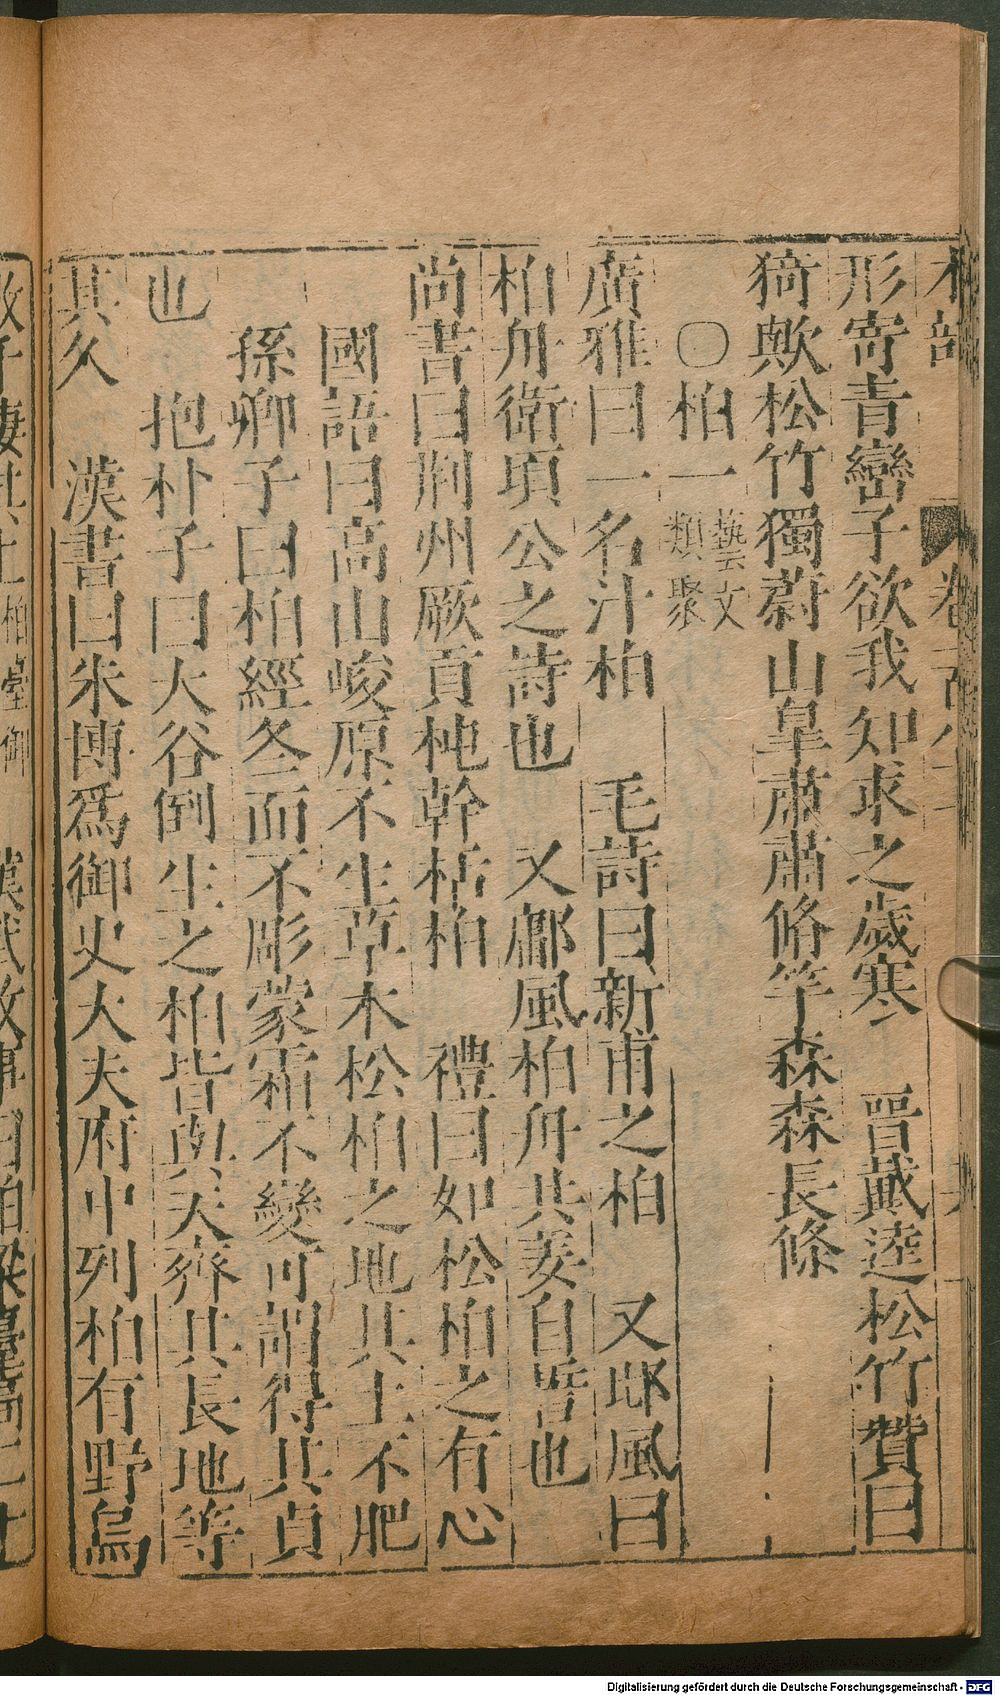 木部
卷
形寄青巒子欲我知求之歲寒　晉戴逵松竹贊曰
猗歟松竹獨蔚山皐肅肅脩竿森森長條
〇柏一藝文類聚
廣雅曰一名汁柏　毛詩曰新甫之柏　又邶風曰
柏舟衛頃公之詩也　又鄘風柏舟共姜自誓也
尚書曰荆州厥貢杶幹栝柏　禮曰如松柏之有心
國語曰高山峻原不生草木松柏之地其土不肥
孫卿子曰柏經冬而不彫蒙霜不變可謂得其貞
也　抱朴子曰大谷倒生之柏皆與天齊其長地等
其久　漢書曰朱博爲御史大夫府中列柏有野烏
數千棲其上柏臺御　漢武故事曰柏梁臺高二十
Digitalisierung gefördert durch die Deutsche Forschungsgemeinschaft - DFG